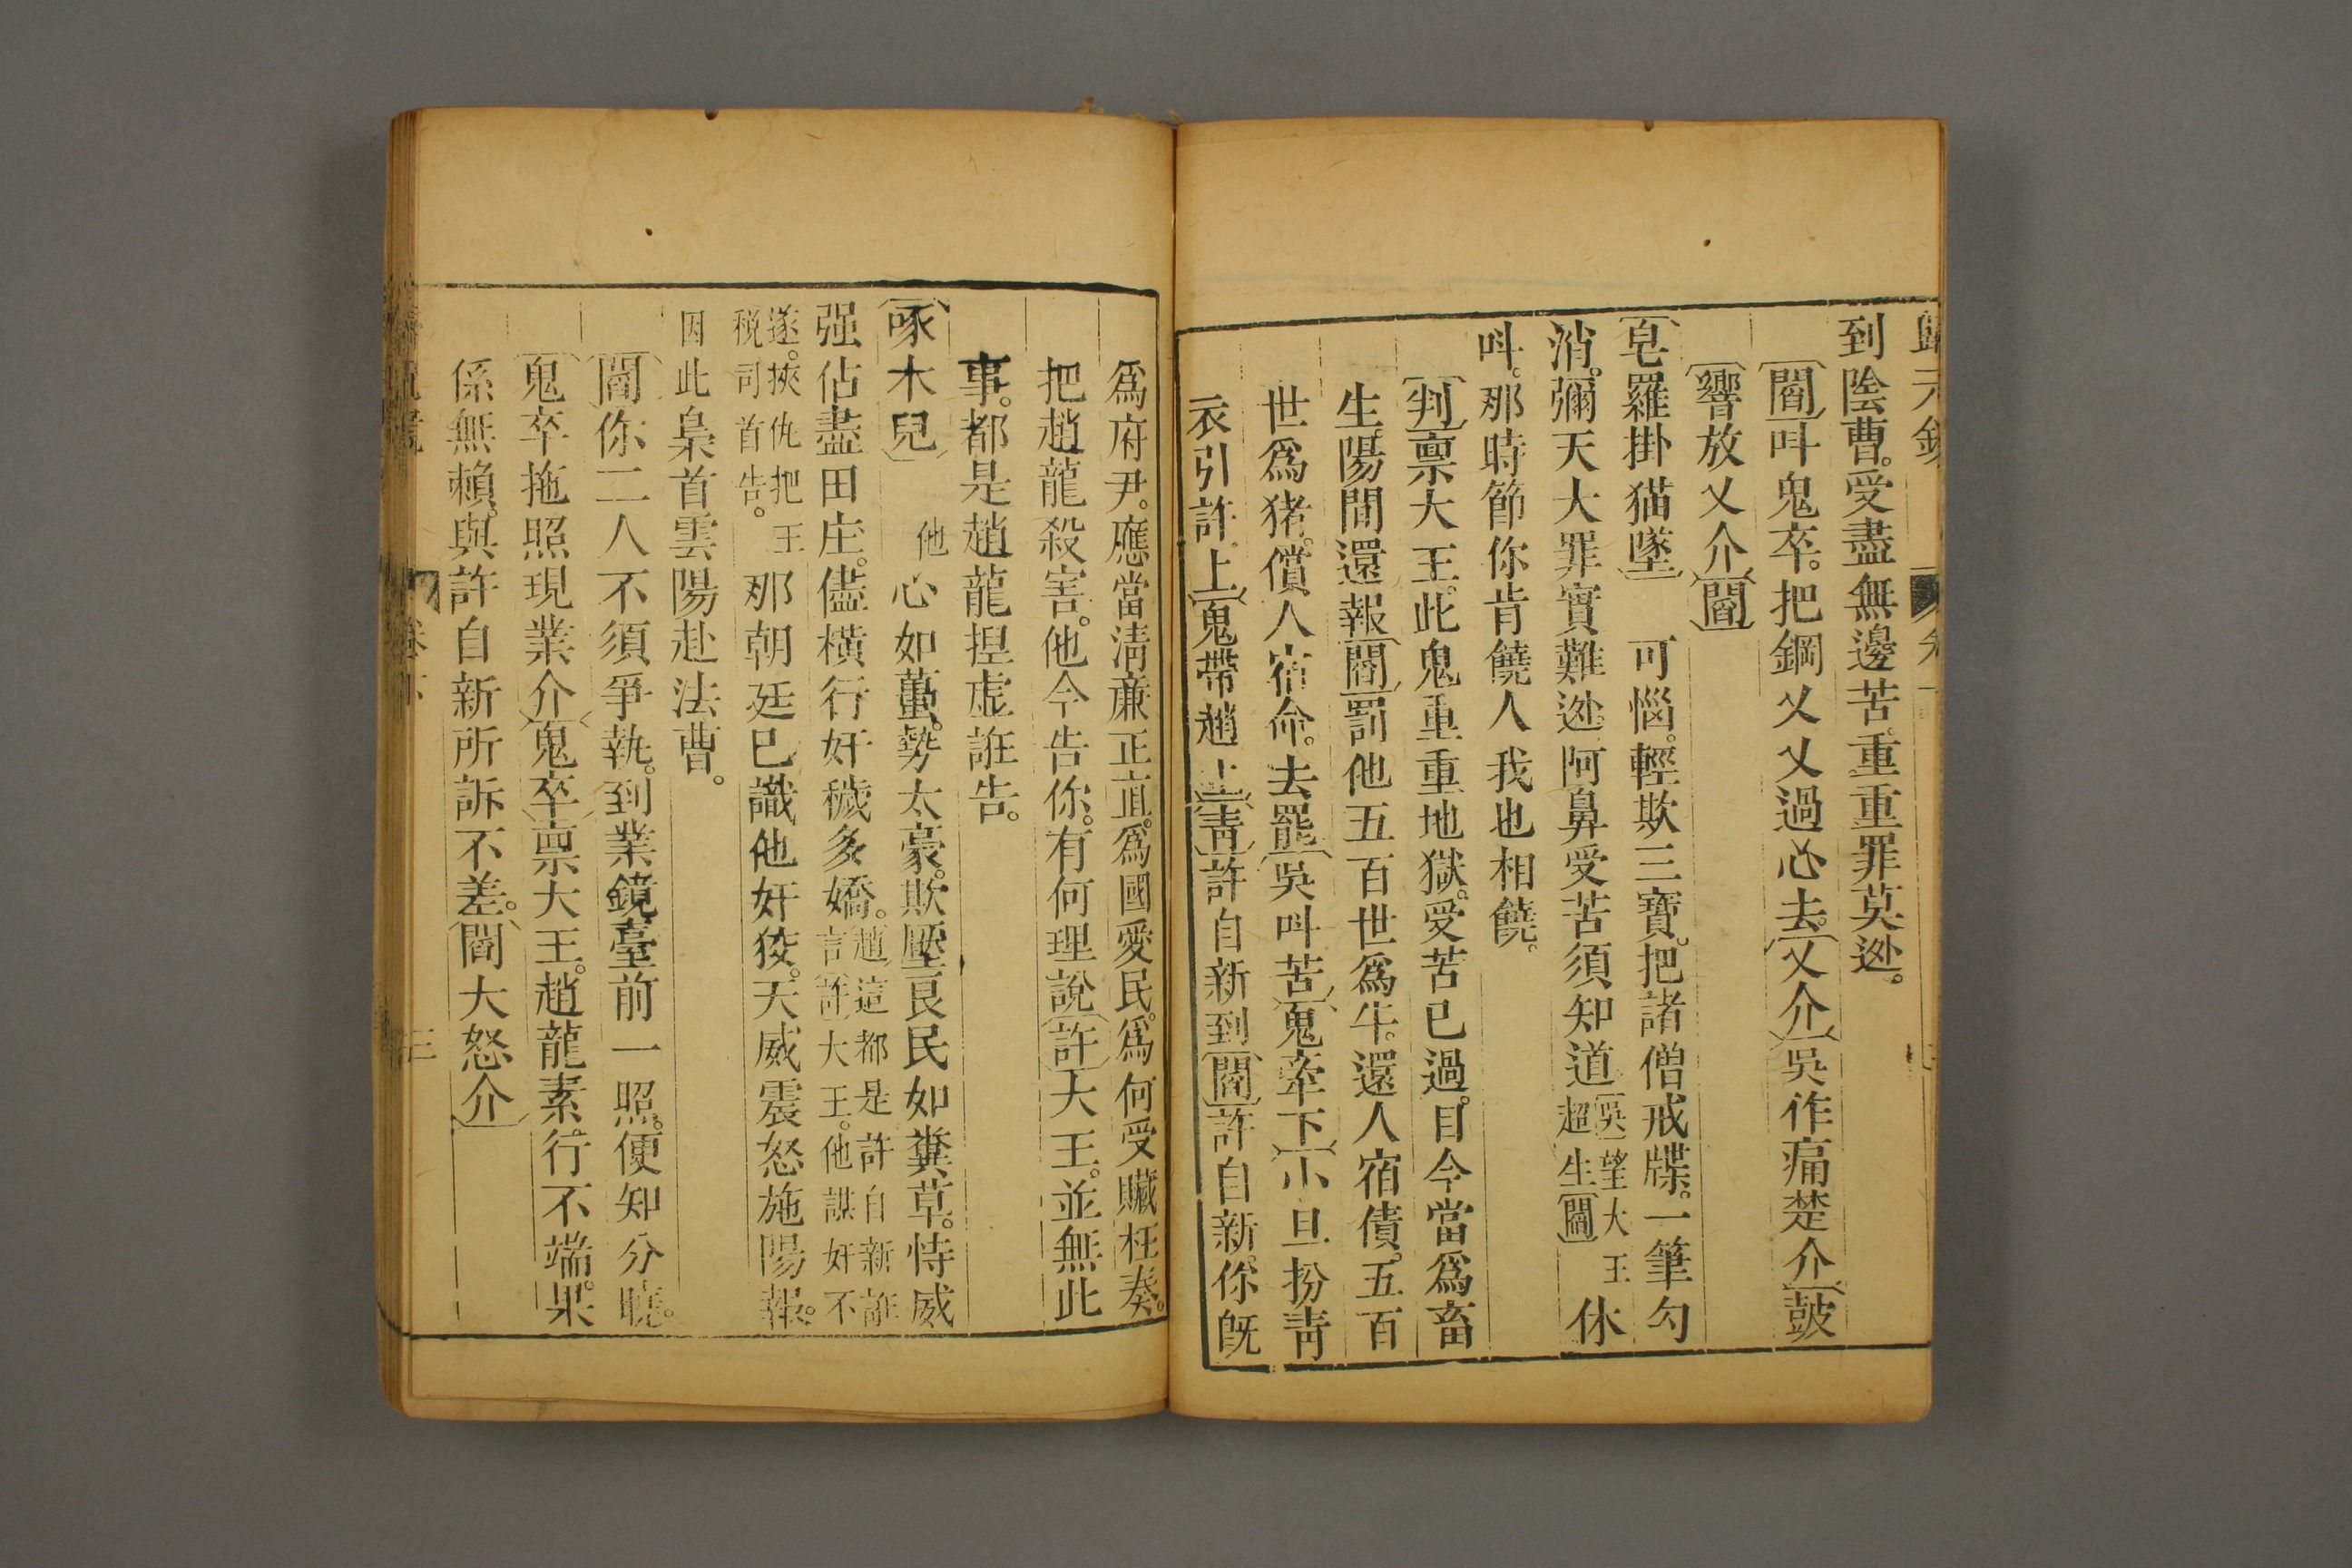 歸元鏡
到陰曹。受盡無邊苦。重重罪莫逃。
閻叫鬼卒。把鋼叉叉過心去。叉介吳作痛楚介鼓
響放叉介閻
皂羅掛猫墜 可惱。輕欺三寶。把諸僧戒牒。一筆勾
消。彌天大罪實難逃。阿鼻受苦須知道吳望大王超生閻休
叫。那時節你肯饒人我也相饒。
判禀大王。此鬼重重地獄。受苦已過。目今當爲畜
生。陽間還報閻罰他五百世爲牛。還人宿債。五百
世爲猪。償人宿命。去罷吳叫苦鬼牽下小旦扮靑
衣引許上鬼帶趙上靑許自新到閻許自新。你旣
爲府尹。應當淸廉正直。爲國愛民。爲何受贜枉奏。
把趙龍殺害。他今告你。有何理說許大王。並無此
事。都是趙龍揑虛誑告。
啄木兒 他心如蠆。勢太豪。欺壓良民如糞草。恃威
强佔盡田庄。儘橫行奸穢多嬌。趙這都是許自新誑言許大王。他謀奸不
遂。挾仇把王稅司首告。那朝廷已識他奸狡。天威震怒施陽報。
因此梟首雲陽赴法曹。
閻你二人不須爭執。到業鏡臺前一照。便知分曉。
鬼卒拖照現業介鬼卒禀大王。趙龍素行不端。果
係無賴。與許自新所訴不差。閻大怒介
卷下
三